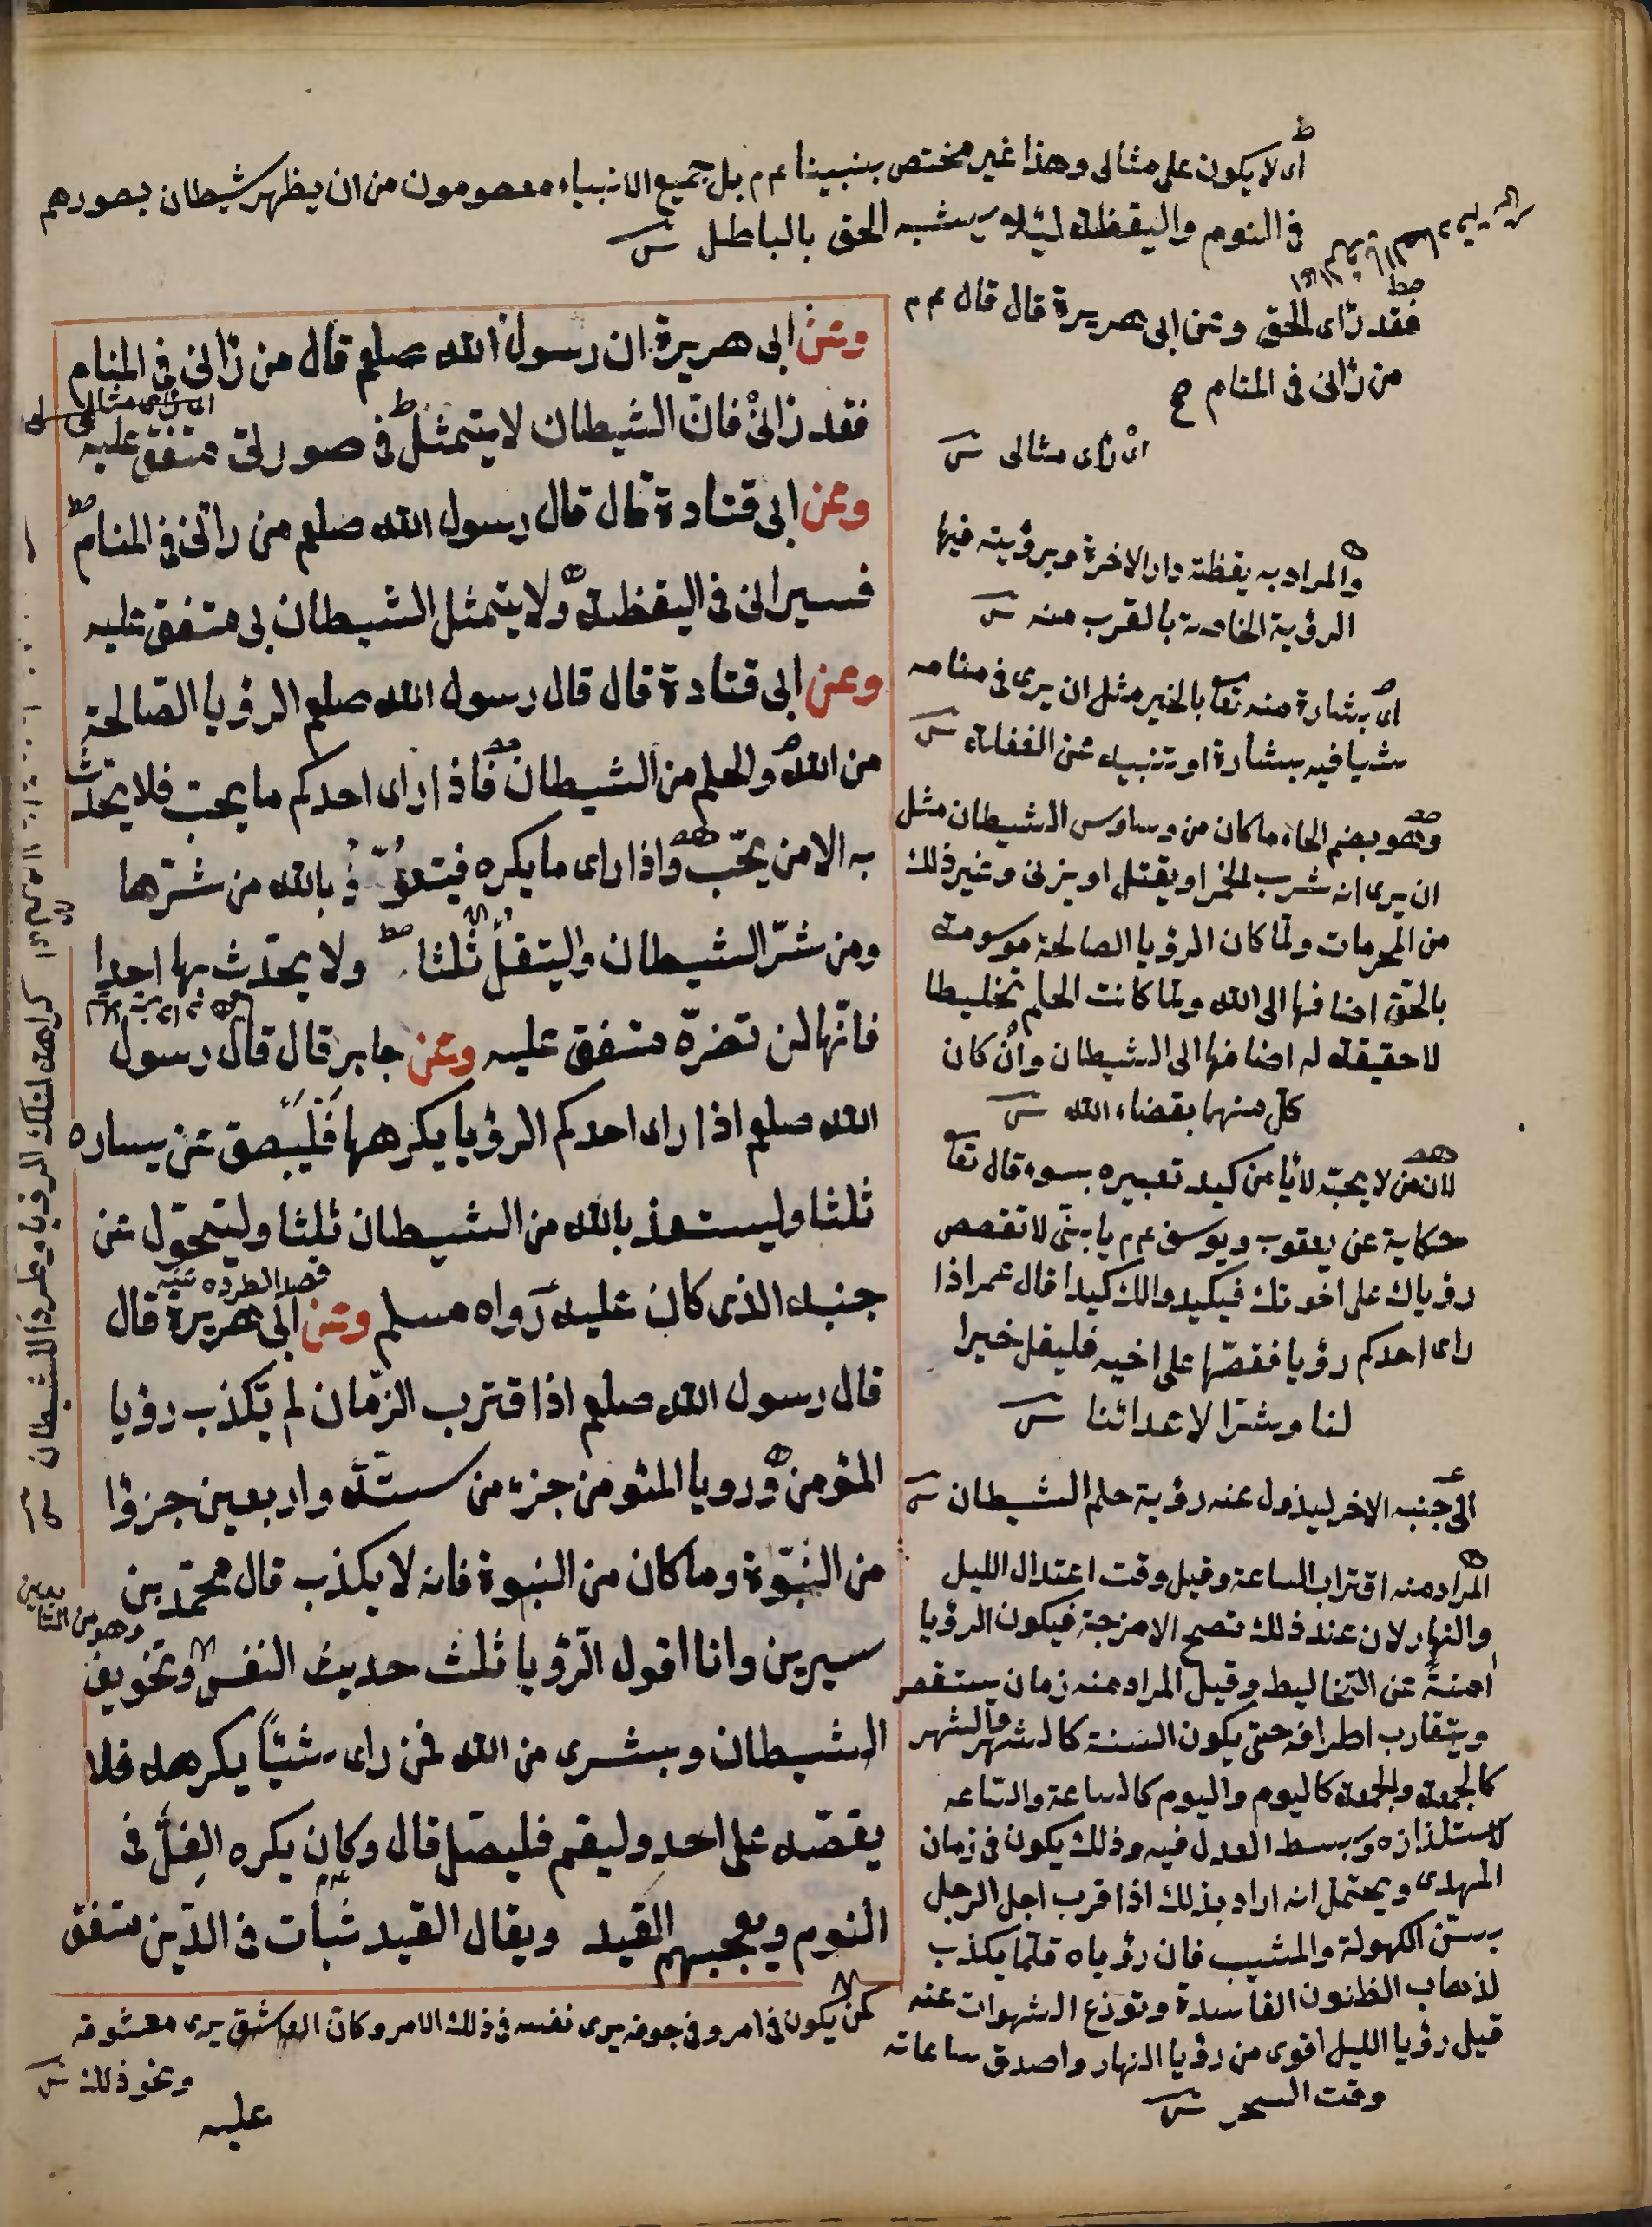 اى لا يكون على مثالى وهذا غير مختص بنبينا عم بل جميع الانبياء معصومون من ان يظهر شيطان بصورهم
فى النوم واليقظة لئلا يشبه الحق بالباطل
وعن ابى هريرة ان رسول الله صلعم قال من رانى فى المنام
فقد رانى فان الشيطان لا يتمثل فى صورتى متفق عليه
وعن ابى قتادة قال قال رسول الله صلعم من رانى فى المنام
فسيرانى فى اليقظة ولا يتمثل الشيطان بى متفق عليه
وعن ابى قتادة قال قال رسول الله صلعم الرؤيا الصالحة
من الله والحلم من الشيطان فاذا راى احدكم ما يحب فلا يحدّث
به الا من يحبّ واذا راى ما يكره فيتعوّذ بالله من شرّها
ومن شرّ الشيطان وليتفل ثلثا ولا يحدّث بها احدا
فانّها لن تضرّه متفق عليه وعن جابر قال قال رسول
الله صلعم اذا راى احدكم الرؤيا يكرهها فليبصق عن يساره
ثلثا وليستعذ بالله من الشيطان ثلثا وليتحوّل عن
جنبه الذى كان عليه رواه مسلم وعن ابى هريرة قال
قال رسول الله صلعم اذا اقترب الزمان لم تكذب رؤيا
المؤمن ورويا المئومن جزء من ستّة واربعين جزؤا
من النبوّة وما كان من النبوة فانه لا يكذب قال محمّد بن
سيرين وانا اقول الرؤيا ثلث حديث النفس وتخويف
الشيطان وبشرى من الله فمن راى شيئاً يكرهه فلا
يقصّه على احد وليقم فليصلّ قال وكان يكره الغلّ فى
النوم ويعجبهم القيد ويقال القيد ثبات فى الدّين متفق
فقد راى الحق وعن ابى هريرة قال قال عم
من رانى فى المنام
اى راى مثالى
والمراد به يقظة دار الاخرة وبرؤيته فيها
الرؤية الخاصة بالقرب منه
اى بشارة منه تعا بالخير مثل ان يرى فى منامه
شيا فيه بشارة او تنبيه عن الغفلة
وهو بضم الحاء ما كان من وساوس الشيطان مثل
ان يرى انه شرب الخمر او يقتل او يزنى وغير ذلك
من المحرمات ولما كان الرؤيا الصالحة موسومة
بالحق اضافها الى الله ولما كانت الحلم تخليطا
لا حقيقة له اضافها الى الشيطان وان كان
كل منهما بقضاء الله
لان من لا يحبّه لا يأمن كيد تعبيره بسوء قال تعا
حكاية عن يعقوب ويوسف عم يا بنىّ لا تقصص
رؤياك على اخوتك فيكيدوا لك كيدا قال عمر اذا
راى احدكم رؤيا فقصّها على اخيه فليقل خيرا
لنا وشرّا لاعدائنا
الى جنبه الاخر ليزول عنه رؤية حلم الشيطان
المراد منه اقتراب الساعة وقيل وقت اعتدال الليل
والنهار لان عند ذلك تصح الامزجة فيكون الرؤيا
امنة عن التخاليط وقيل المراد منه زمان يستقصر
ويتقارب اطرافه حتى يكون السنة كالشهر والشهر
كالجمعة والجمعة كاليوم واليوم كالساعة والساعه
لاستلذاذه وبسط العدل فيه وذلك يكون فى زمان
المهدى ويحتمل انه اراد بذلك اذا قرب اجل الرجل
بسنّ الكهولة والمشيب فان رؤياه قلما يكذب
لذهاب الظنون الفاسدة وتوزع الشهوات عنه
قيل رؤيا الليل اقوى من رؤيا النهار واصدق ساعاته
وقت السحر
اى راى مثالى
قصد الطرده عنه
وهو من التابعين
كراهة لتلك الرؤيا وطردا للشيطان
كمن يكون فى امر وفى جوفه يرى نفسه فى ذلك الامر وكان العاشق يرى معشوقه
ونحو ذلك
عليه